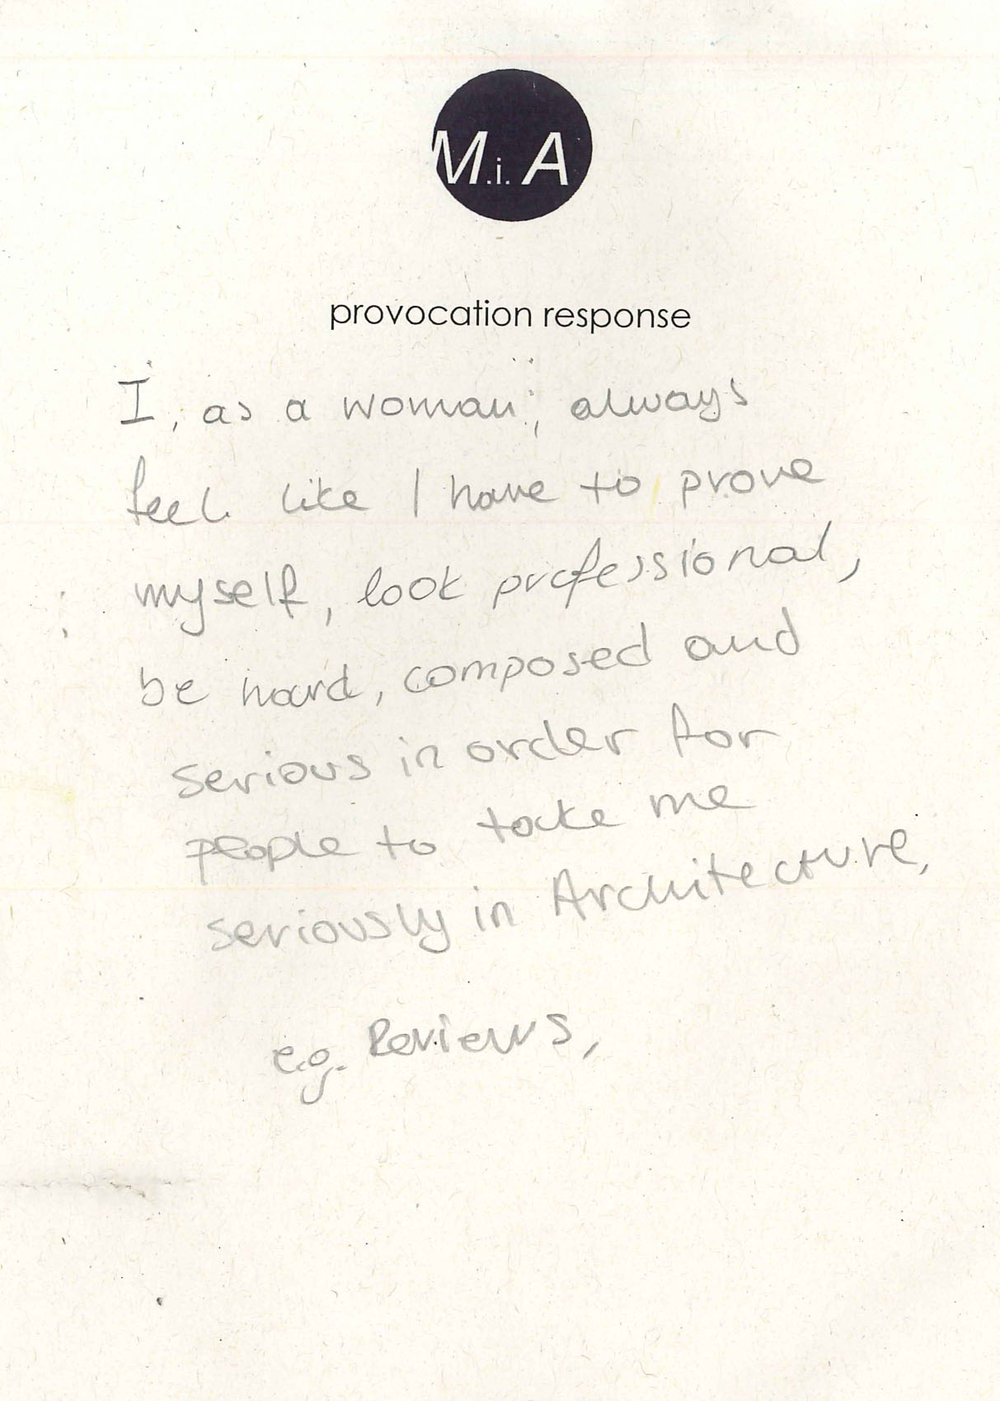 M.i.A
provocation response
I, as a woman, always
feel like I have to prove
myself, look professional,
be hard, composed and
serious in order for
people to take me
seriously in Architecture,
e.g. Reviews,